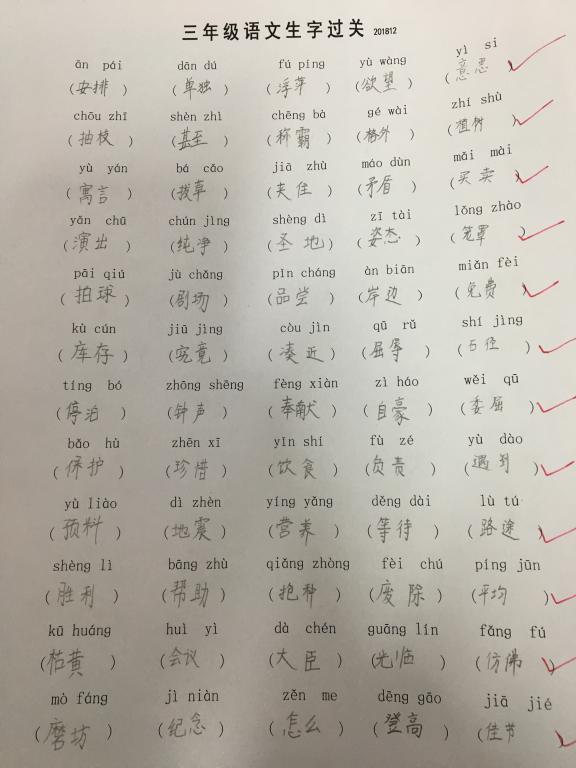 三年级语文生字过关 201812
ān pái dān dú fú píng yù wàng yì si
(安排) (单独) (浮萍) (欲望) (意思)
chōu zhī shèn zhì chēng bà gé wài zhí shù
(抽枝) (甚至) (称霸) (格外) (植树)
yù yán bá cǎo jiā zhù máo dùn mǎi mài
(寓言) (拔草) (夹住) (矛盾) (买卖)
yǎn chū chún jìng shèng dì zī tài lǒng zhào
(演出) (纯净) (圣地) (姿态) (笼罩)
pāi qiú jù chǎng pǐn cháng àn biān miǎn fèi
(拍球) (剧场) (品尝) (岸边) (免费)
kù cún jiū jìng còu jìn qū rǔ shí jìng
(库存) (究竟) (凑近) (屈辱) (石径)
tíng bó zhōng shēng fèng xiàn zì háo wěi qū
(停泊) (钟声) (奉献) (自豪) (委屈)
bǎo hù zhēn xī yǐn shí fù zé yù dào
(保护) (珍惜) (饮食) (负责) (遇到)
yù liào dì zhèn yíng yǎng děng dài lù tú
(预料) (地震) (营养) (等待) (路途)
shèng lì bāng zhù qiǎng zhòng fèi chú píng jūn
(胜利) (帮助) (抢种) (废除) (平均)
kū huáng huì yì dà chén guāng lín fǎng fú
(枯黄) (会议) (大臣) (光临) (仿佛)
mò fáng jì niàn zěn me dēng gāo jiā jié
(磨坊) (纪念) (怎么) (登高) (佳节)